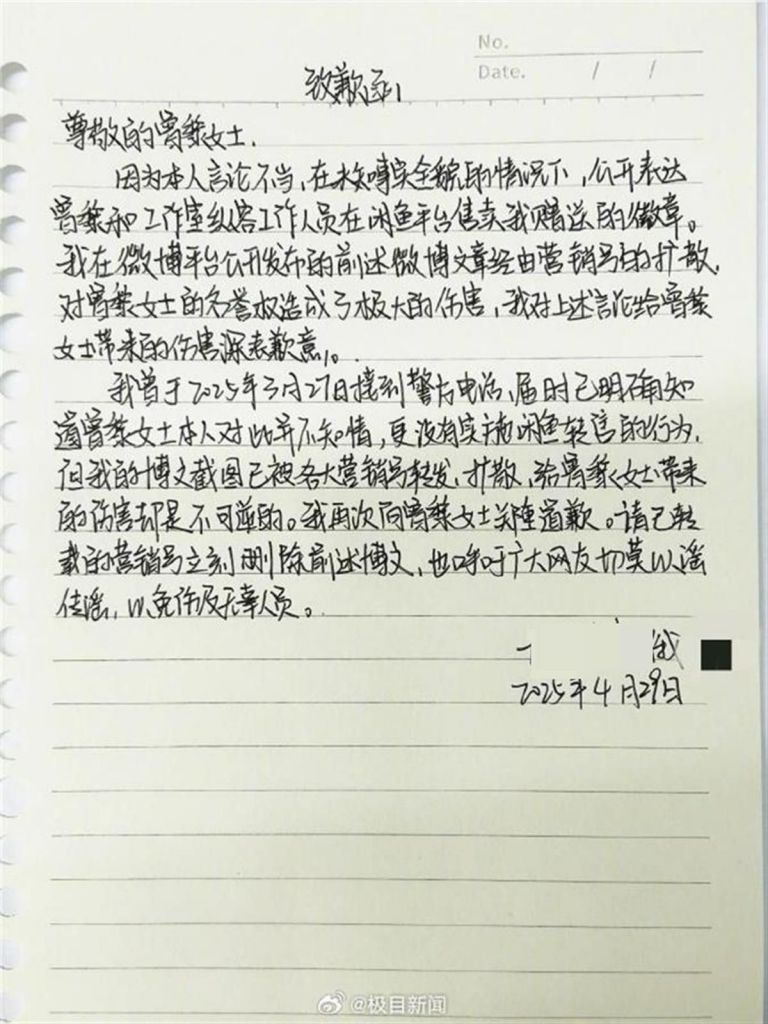 No.
Date. / /
致歉函
尊敬的曾黎女士.
因为本人言论不当,在未知事实全貌的情况下,公开表达
曾黎和工作室纵容工作人员在闲鱼平台售卖我赠送的徽章。
我在微博平台公开发布的前述微博文章经由营销号的扩散,
对曾黎女士的名誉权造成了极大的伤害,我对上述言论给曾黎
女士带来的伤害深表歉意。
我曾于2025年3月27日接到警方电话,届时已明确知
道曾黎女士本人对此并不知情,更没有实施闲鱼转售的行为,
但我的博文截图已被各大营销号转发,扩散,给曾黎女士带来
的伤害却是不可逆的。我再次向曾黎女士郑重道歉。请已转
载的营销号立刻删除前述博文,也呼吁广大网友切莫以谣
传谣,以免伤及无辜人员。
2025年4月29日
@极目新闻